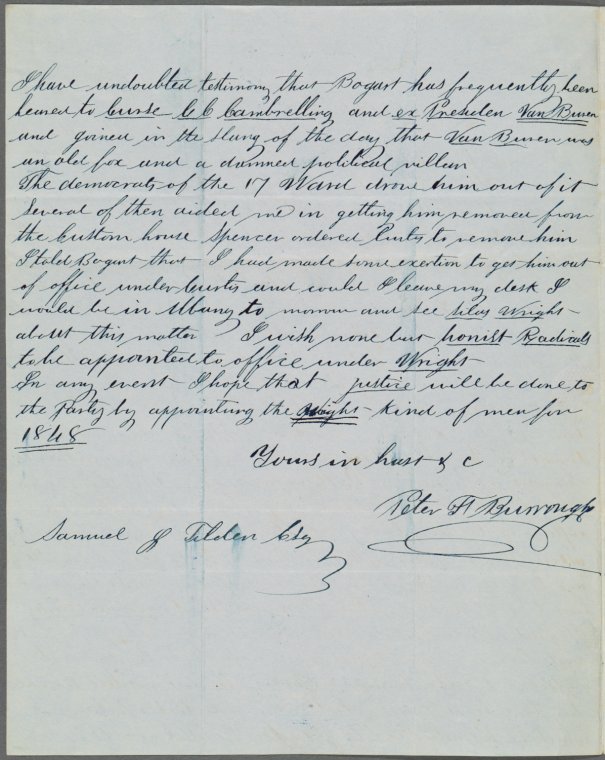 I have undoubted testimony that Bogart has frequently been
heared to curse C C Cambrelling and ex Presiden Van Buren
and goined in the slang of the day that Van Buren was
an old fox and a damned political villan
The democrats of the 17 Ward drove him out of it
Several of then aided me in getting him removed from
the Custom house Spencer ordered Curtis to remove him
I told Bogart that I had made some exertion to get him out
of office under Curtis and could I leave my desk I
would be in Albany to morrow and see Silas Wright
about this matter I wish none but honist Radicals
to be appointed to office under Wright
In any event I hope that justice will be done to
the Party by appointing the Wright kind of men for
1848
Yours in hast & c
Peter H Burroughs
Samuel J Tilden Esq